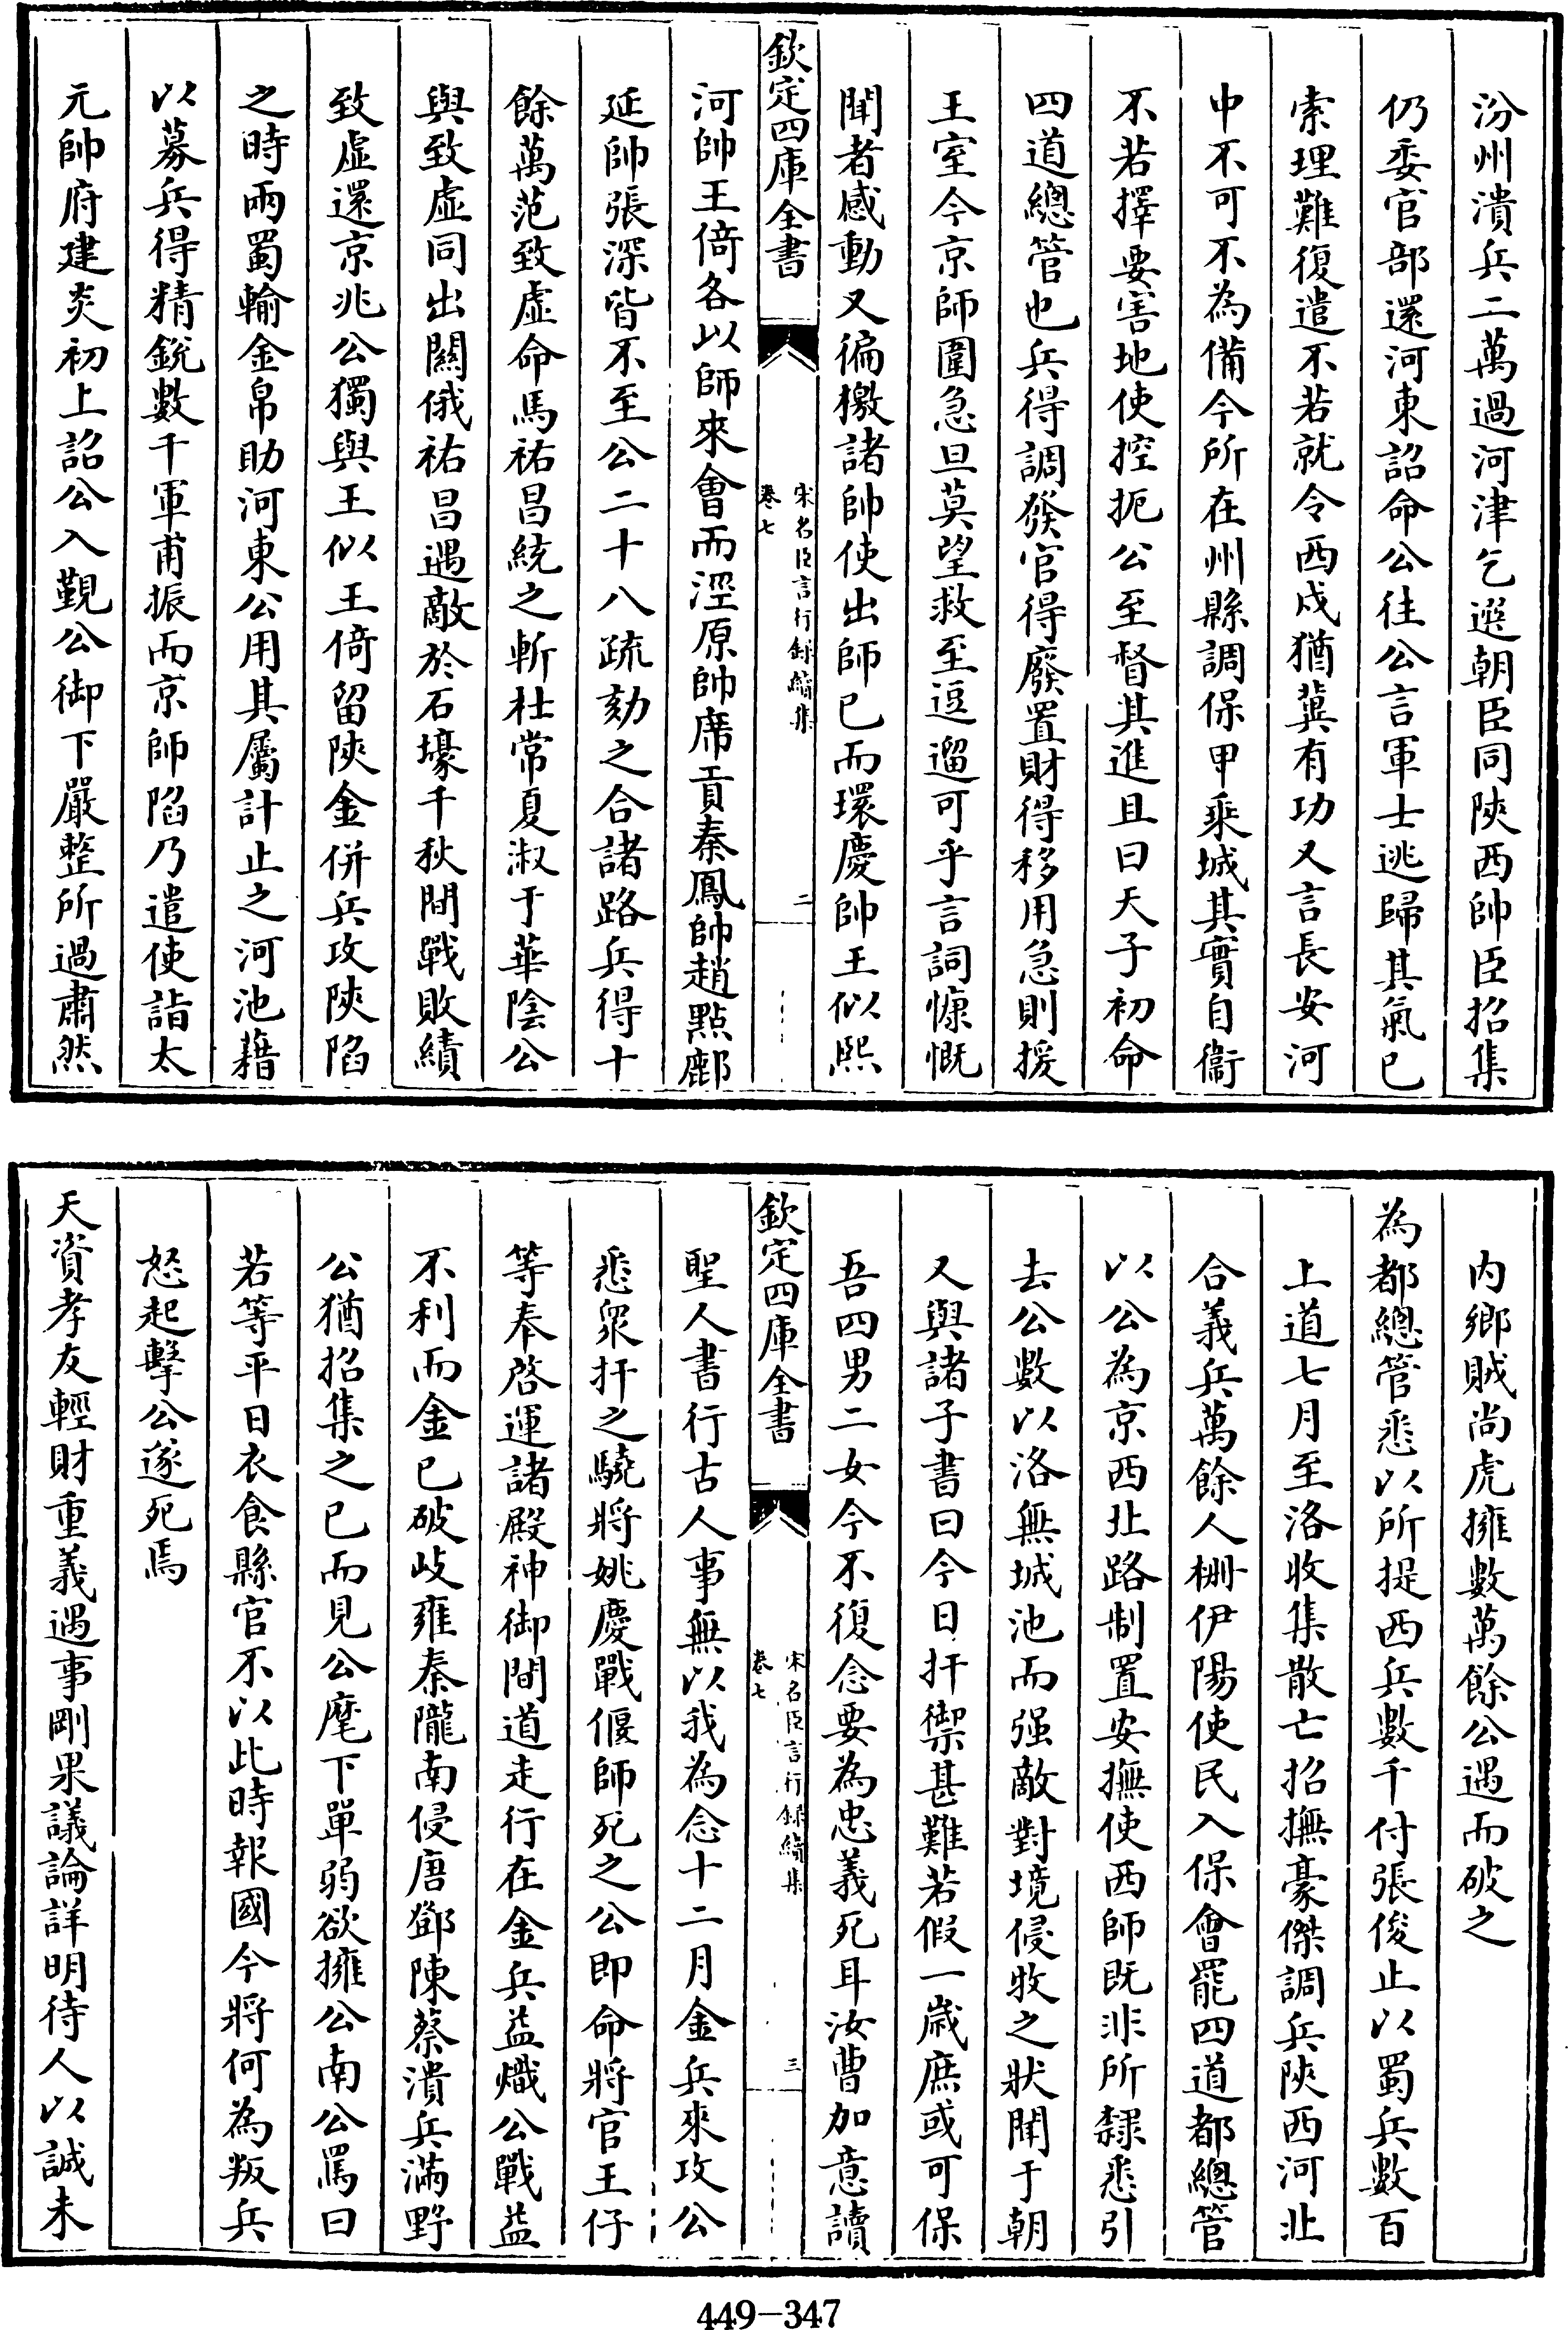 汾州潰兵二萬過河津乞選朝臣同陜西帥臣招集
仍委官部還河東詔命公往公言軍士逃歸其氣已
索理難復遣不若就令西戍猶冀有功又言長安河
中不可不為備今所在州縣調保甲乘城其實自衞
不若擇要害地使控扼公至督其進且曰天子初命
四道總管也兵得調發官得廢置財得移用急則援
王室今京師圍急旦莫望救至逗遛可乎言詞慷慨
聞者感動又徧檄諸帥使出師已而環慶帥王似熙
欽定四庫全書
宋名臣言行録續集
卷七
二
河帥王倚各以師來會而涇原帥席貢秦鳳帥趙點鄜
延帥張深皆不至公二十八疏劾之合諸路兵得十
餘萬范致虛命馬祐昌統之斬杜常夏淑于華陰公
與致虛同出關俄祐昌遇敵於石壕千秋間戰敗績
致虛還京兆公獨與王似王倚留陜金併兵攻陜陷
之時兩蜀輸金帛助河東公用其屬計止之河池藉
以募兵得精銳數千軍甫振而京師陷乃遣使詣太
元帥府建炎初上詔公入覲公御下嚴整所過肅然
內鄉賊尚虎擁數萬餘公遇而破之
為都總管悉以所提西兵數千付張俊止以蜀兵數百
上道七月至洛收集散亡招撫豪傑調兵陜西河北
合義兵萬餘人柵伊陽使民入保會罷四道都總管
以公為京西北路制置安撫使西師既非所隸悉引
去公數以洛無城池而强敵對境侵牧之狀聞于朝
又與諸子書曰今日扞禦甚難若假一歲庶或可保
吾四男二女今不復念要為忠義死耳汝曹加意讀
欽定四庫全書
宋名臣言行録續集
卷七
三
聖人書行古人事無以我為念十二月金兵來攻公
悉衆扞之驍將姚慶戰偃師死之公即命將官王仔
等奉啓運諸殿神御間道走行在金兵益熾公戰益
不利而金已破岐雍秦隴南侵唐鄧陳蔡潰兵滿野
公猶招集之已而見公麾下單弱欲擁公南公罵曰
若等平日衣食縣官不以此時報國今將何為叛兵
怒起擊公遂死焉
天資孝友輕財重義遇事剛果議論詳明待人以誠未
449-347